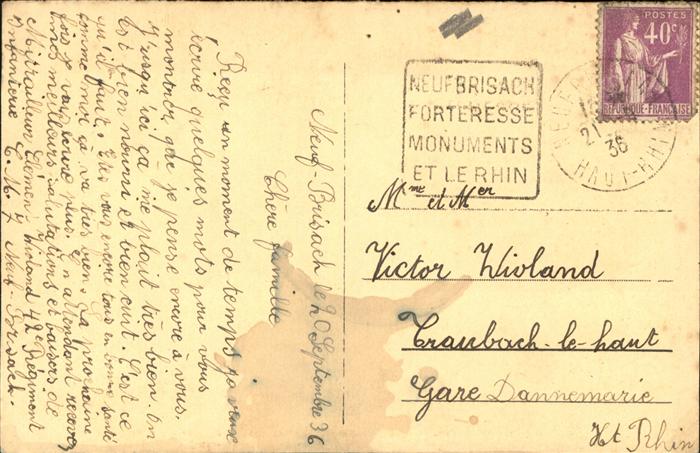 Neuf-Brisach le 20 Septembre 36
Chère famille
Reçu un moment de temps je veux
écrire quelques mots pour vous
montrer que je pense encore à vous.
Jusqu'ici ça me plait très bien. On
est bien nourri et bien cuit. C'est ce
qu'il faut. Êtes vous encore tous en bonne santé
comme moi ça va très bien. La prochaine
fois je vous écrirai plus. En attendant recevez
mes meilleurs salutations et baisers de
Mitrailleur Clement Wioland 42 Régiment
Infanterie C. M. 7 Neuf-Brisach.
NEUFBRISACH
FORTERESSE
MONUMENTS
ET LE RHIN
POSTES
40c
REPUBLIQUE-FRANÇAISE
21
36
HAUT-RHIN
Mme et Mer
Victor Wioland
Traubach-le-haut
Gare Dannemarie
Ht Rhin